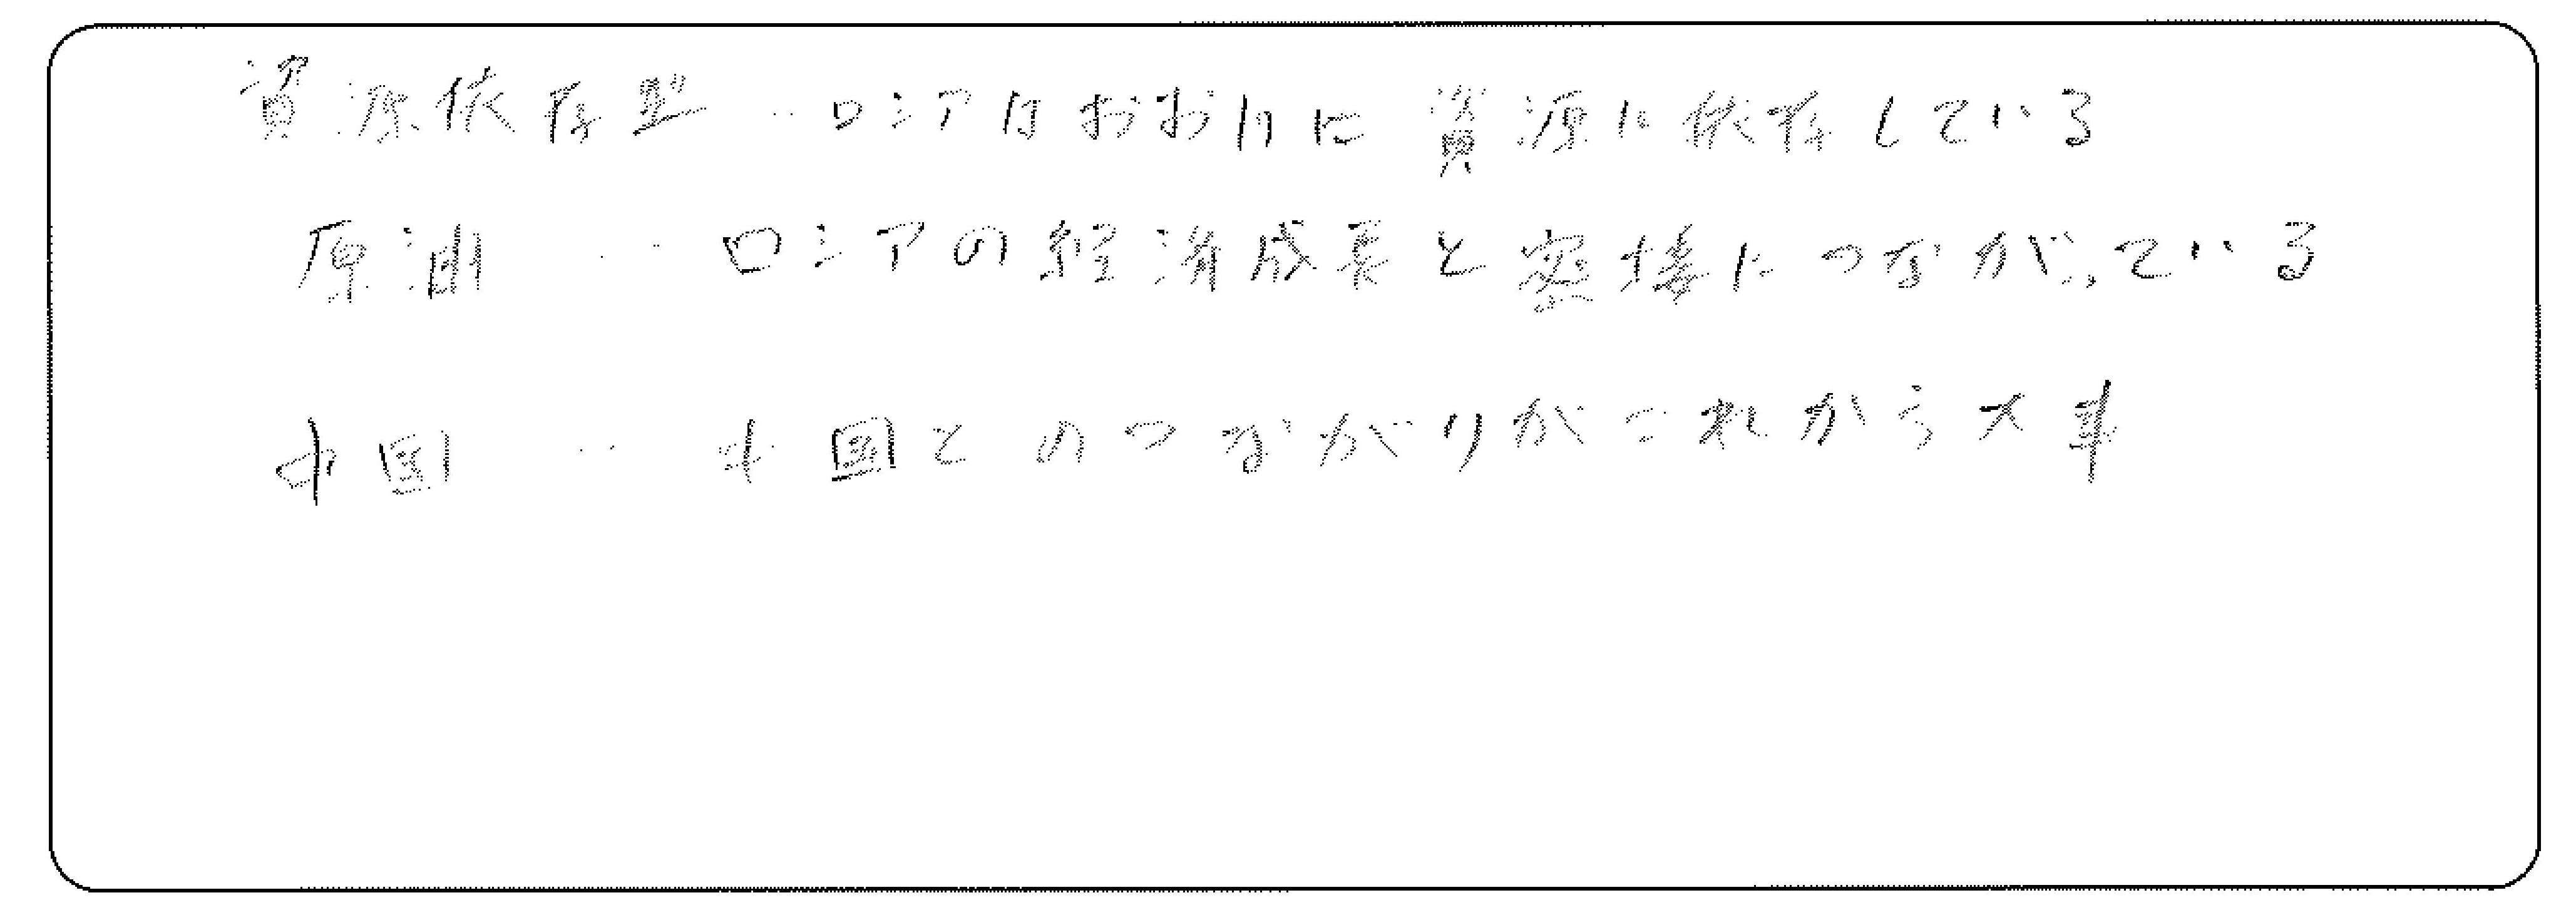 資源依存型 ‥ロシアはおおいに資源に依存している
原油 ‥ロシアの経済成長と密接につながっている
中国 ‥中国とのつながりがこれから大事